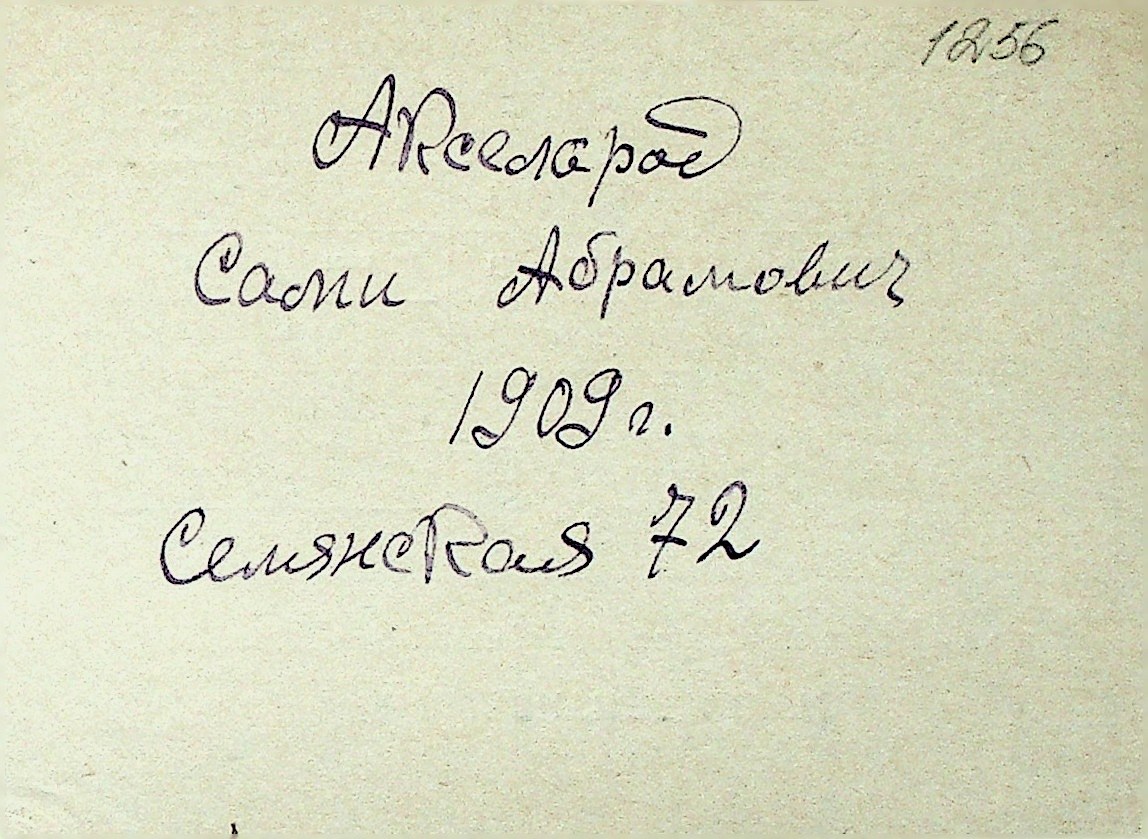 1256
Акселарод
Сами Абрамович
1909 г.
Семянская 72